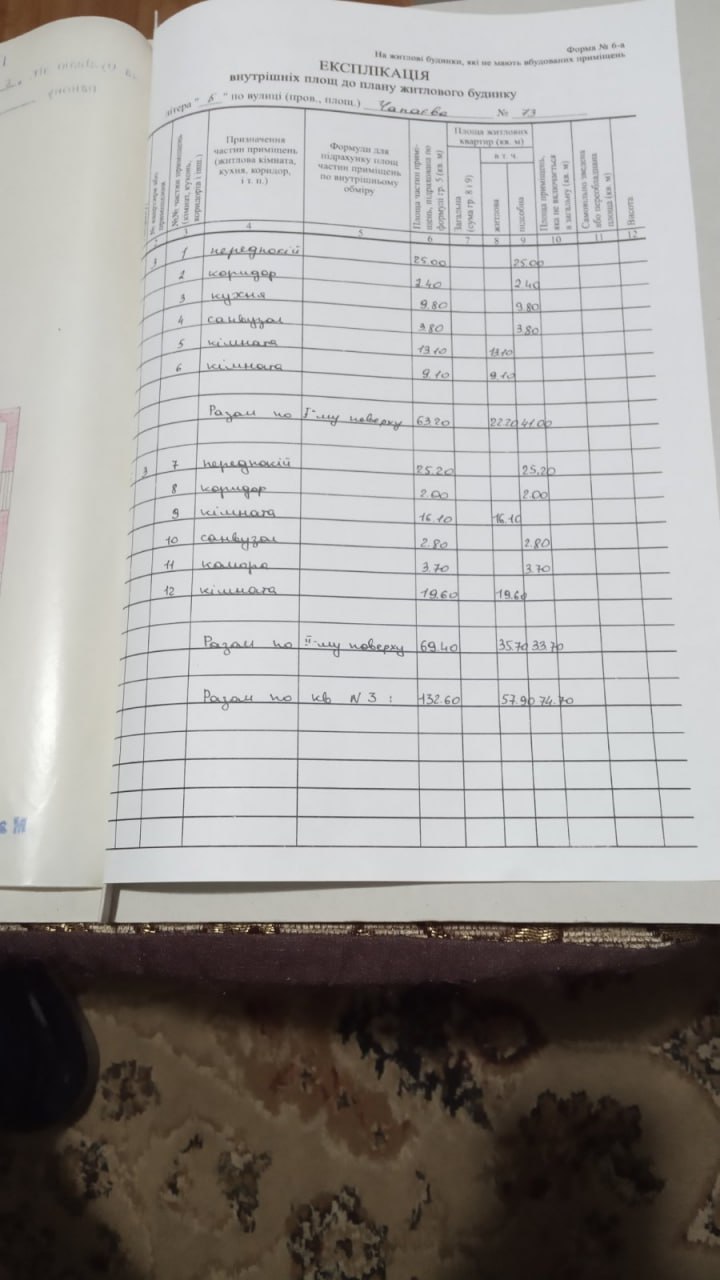 Форма № 6-а
На житлові будинки, які не мають вбудованих приміщень
ЕКСПЛІКАЦІЯ
внутрішніх площ до плану житлового будинку
літера "Б" по вулиці (пров., площ.) Чапаєва № 73
№№ частин приміщень (кімнат, кухонь, коридорів і інш.)
Призначення частин приміщень (житлова кімната, кухня, коридор, і т. п.)
Формули для підрахунку площ частин приміщень по внутрішньому обміру
Площа частин приміщень, підрахована по формулі гр. 5 (кв. м)
Площа житлових квартир (кв. м)
Загальна (сума гр. 8 і 9)
в т. ч.
житлова
підсобна
Площа приміщень, яка не включається в загальну (кв. м)
Самовільно зведена або переобладнана площа (кв. м)
Висота
4 5 6 7 8 9 10 11 12
3 1 передпокій 25.00 25.00
2 коридор 2.40 2.40
3 кухня 9.80 9.80
4 санвузол 3.80 3.80
5 кімната 13.10 13.10
6 кімната 9.10 9.10
Разом по І-му поверху 63.20 22.20 41.00
3 7 передпокій 25.20 25.20
8 коридор 2.00 2.00
9 кімната 16.10 16.10
10 санвузол 2.80 2.80
11 комора 3.70 3.70
12 кімната 19.60 19.60
Разом по ІІ-му поверху 69.40 35.70 33.70
Разом по кв N 3 : 132.60 57.90 74.70